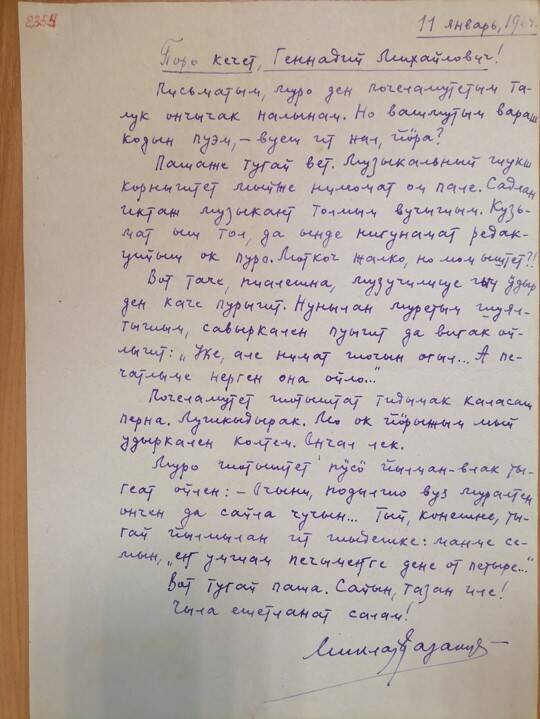 2354
11 январь, 1964.
Поро кече, Геннадий Михайлович!
Письматым, муро ден почеламутетым та-
лук ончычак налынам. Но вашмутым вараш
кодын пуэм, – вуеш ит нал, йӧра?
Пашаже тугай вет. Музыкальный шукш
корныштет мыйже нимомат ом пале. Садлан
иктаж музыкант толмым вучышым. Кузь-
мат ыш тол, да ынде нигунамат редак-
цийыш ок пуро. Моткоч жалко, но мом ыштет?!
Вот таче, пиалешна, музучилище гыч ӱдыр
ден каче пурышт. Нунылан муретым шуял-
тышым, савыркален пуышт да вигак ой-
лышт: „Уке, але нимат шочын огыл... А пе-
чатлыме нерген она ойло...“
Почеламутет шотыштат тидымак каласаш
перна. Лушкыдырак. Мо ок йӧрыжым мый
удыркален колтем. Ончал лек.
Муро шотыштет пӱсӧ йылман-влак ты-
геат ойлен: – Очыни, подылшо вуз муралтен
ончен да сайла чучын... Тый, конешне, ты-
гай йылмылан ит шыдешке: манме се-
мын, „ең умшам печымеҥге дене от петыре...“
Вот тугай паша. Сайын, тазан иле!
Чыла ешетланат салам!